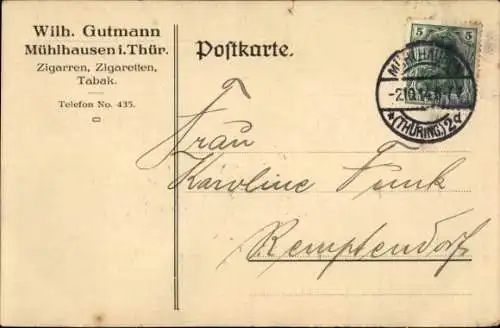 Wilh. Gutmann
Mühlhausen i. Thür.
Zigarren, Zigaretten,
Tabak.
Telefon No. 435.
Postkarte.
5 5
-2.10.14.
*(THÜRING.)2d
Frau
Karoline Funk
Remptendorf